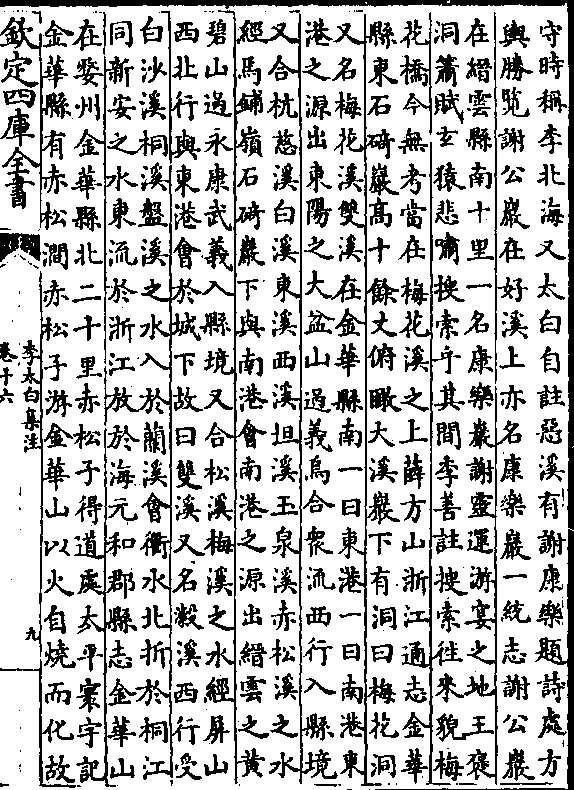 守時稱李北海又太白自註惡溪有謝康樂題詩處方
輿勝覽謝公巖在好溪上亦名康樂巖一統志謝公巖
在縉雲縣南十里一名康樂巖謝靈運游宴之地王褒
洞簫賦玄猿悲嘯搜索乎其間李善註搜索往來貌梅
花橋今無考當在梅花溪之上薛方山浙江通志金華
縣東石碕巖高十餘丈俯瞰大溪巖下有洞曰梅花洞
又名梅花溪雙溪在金華縣南一曰東港一曰南港東
港之源出東陽之大盆山過義烏合衆流西行入縣境
又合杭慈溪白溪東溪西溪坦溪玉泉溪赤松溪之水
經馬鋪嶺石碕巖下與南港會南港之源出縉雲之黄
碧山過永康武義入縣境又合松溪梅溪之水經屏山
西北行與東港會於城下故曰雙溪又名瀔溪西行受
白沙溪桐溪盤溪之水入於蘭溪會衢水北折於桐江
同新安之水東流於浙江放於海元和郡縣志金華山
在婺州金華縣北二十里赤松子得道處太平寰宇記
金華縣有赤松澗赤松子游金華山以火自燒而化故
欽定四庫全書
李太白集注
卷十六
九